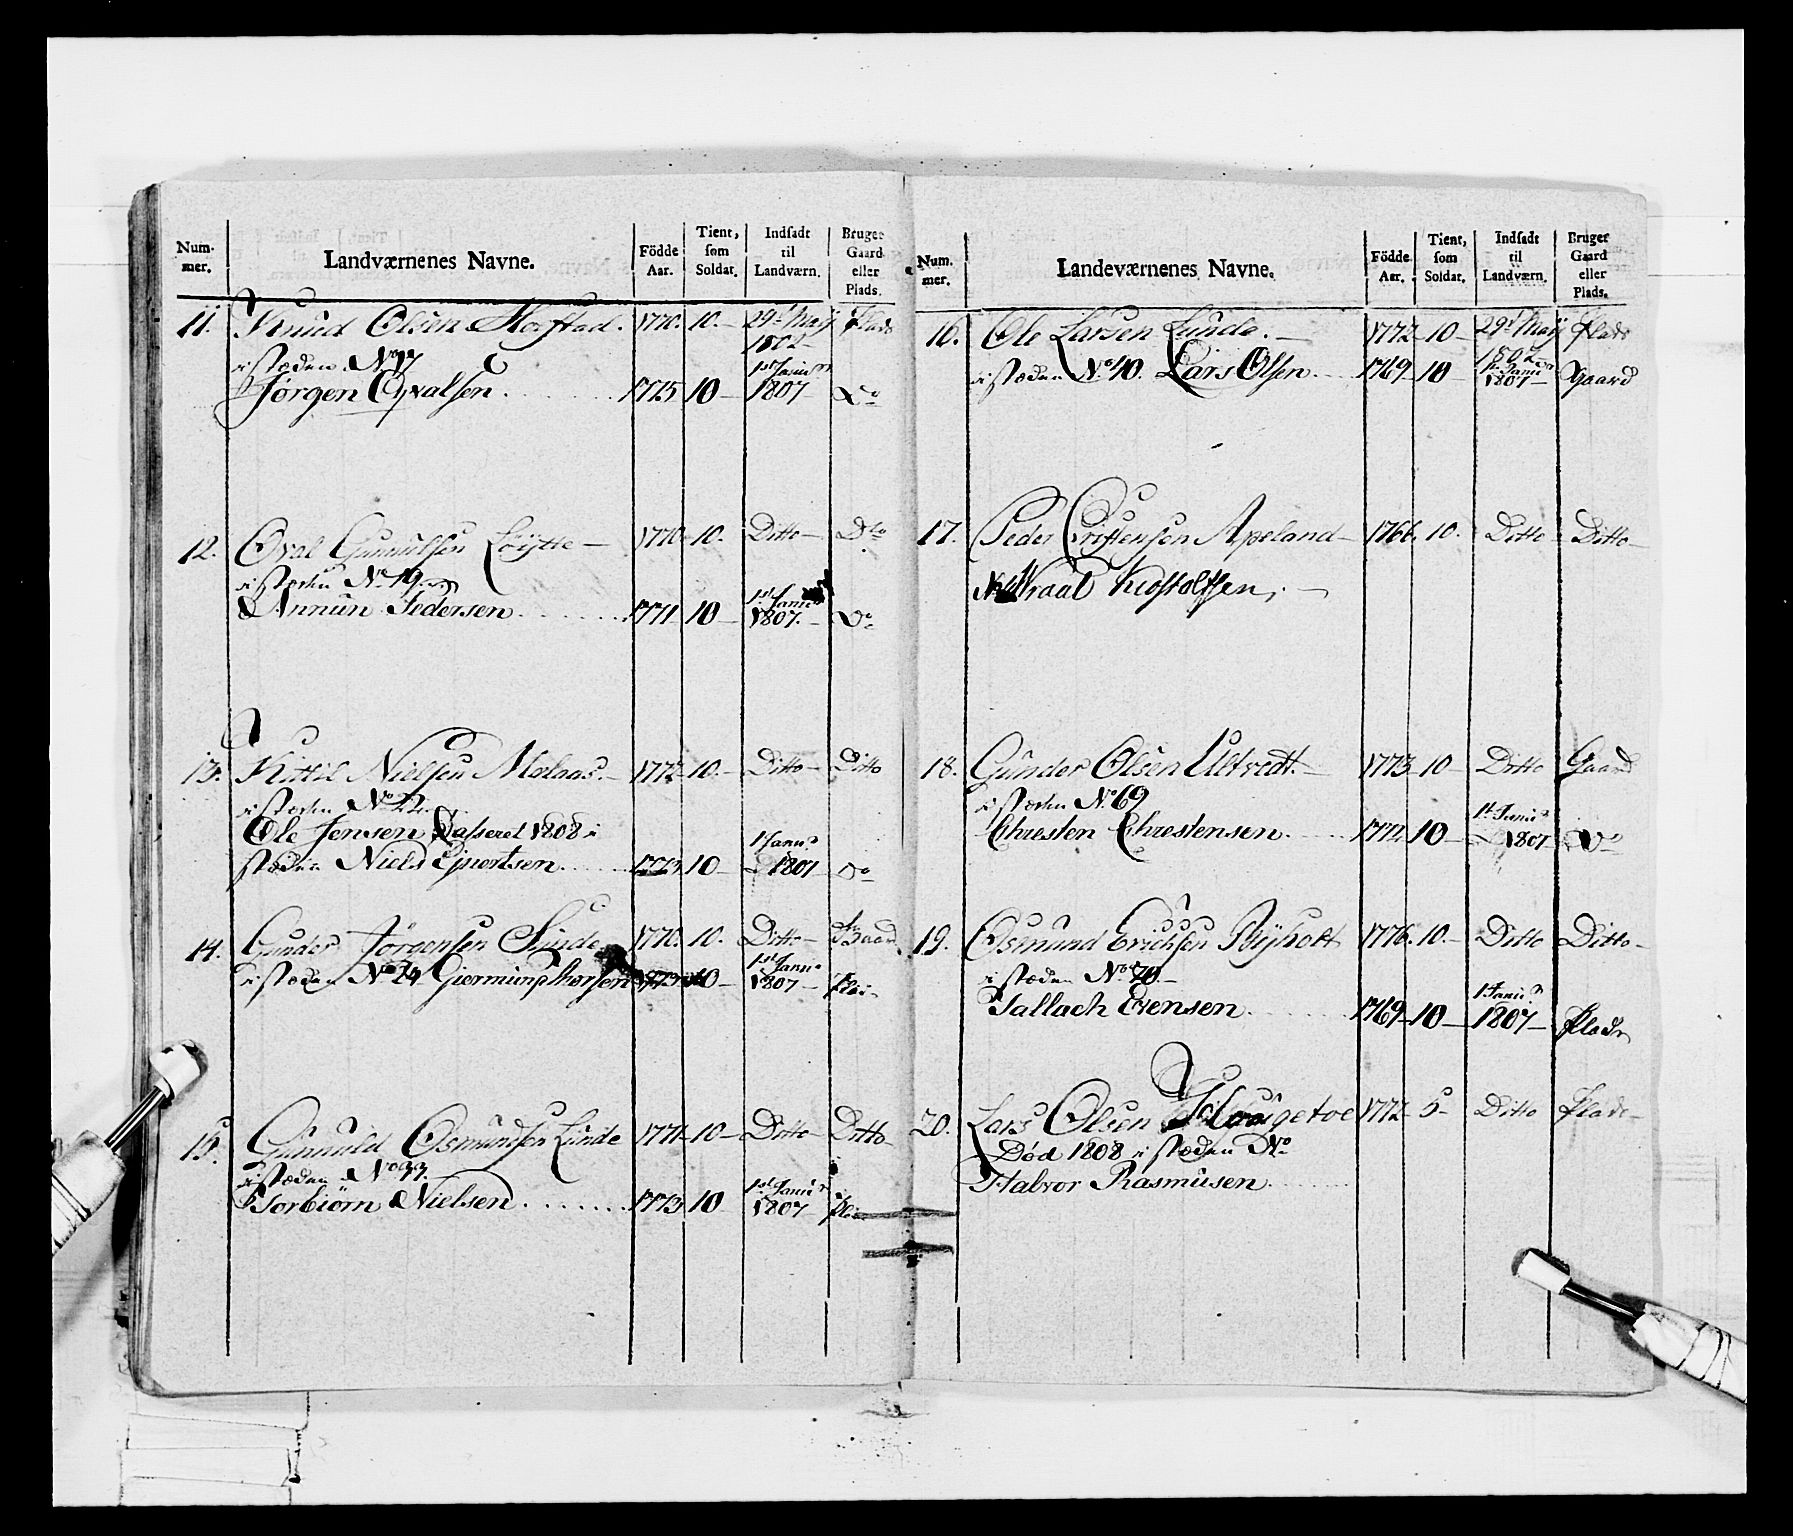 Num-mer. Landværnenes Navne. Födde Aar. Tient, som Soldat. Indsadt til Landværn. Bruger Gaard eller Plads.
11. Knud Olsen 1770. 10.— 29d Maij 1802 Plads
i stæden No 17
Jörgen 1775 10— 1st Janu 1807 Do
12. Gunnulsen 1770. 10. Ditto— Dto
i stæden No 19.
Annun Pedersen 1771 10— 1st Janu 1807.— Do
13. Kittil Nielsen Molaas.— 1772 10.— Ditto— Ditto
i stæden No 22
Ole Jensen Casseret 1808 i
stæden Niels 1773 10— 1 Janu 1807 Do
14. Gunder Jörgensen 1770. 10. Ditto— Gaard
i stæden No 24 Giermund 10— 1st Janu 1807—
15. Gunnuld Osmundsen Lunde 1771— 10— Ditto— Ditto
i stæden No 33.
Torbiörn Nielsen 1773 10 1st Janu 1807
Num-mer. Landeværnenes Navne. Födde Aar. Tient, som Soldat. Indsadt til Landværn. Bruger Gaard eller Plads.
16. Ole Larsen Lunde.— 1772 10— 29d Maij 1802 Plads
i stæden No 40. Lars Olsen 1769— 10 1st Janu 1807— Gaard
17. Peder Cristensen Apeland— 1766. 10. Ditto Ditto—
18. Gunder Olsen Ultvedt.— 1773 10— Ditto Gaard
i stæden No 69
Chresten Chrestensen 1772 10— 1t Janu 1807 Do
19. Osmund Erichsen Byholt 1776. 10.— Ditto Ditto—
i stæden No 70.—
Tallach Evensen 1769— 10— 1 Janu 1807— Plads
20. Lars Olsen Haugetoe 1772— 5— Ditto Plads—
Död 1808 i stæden No
Halvor Rasmusen